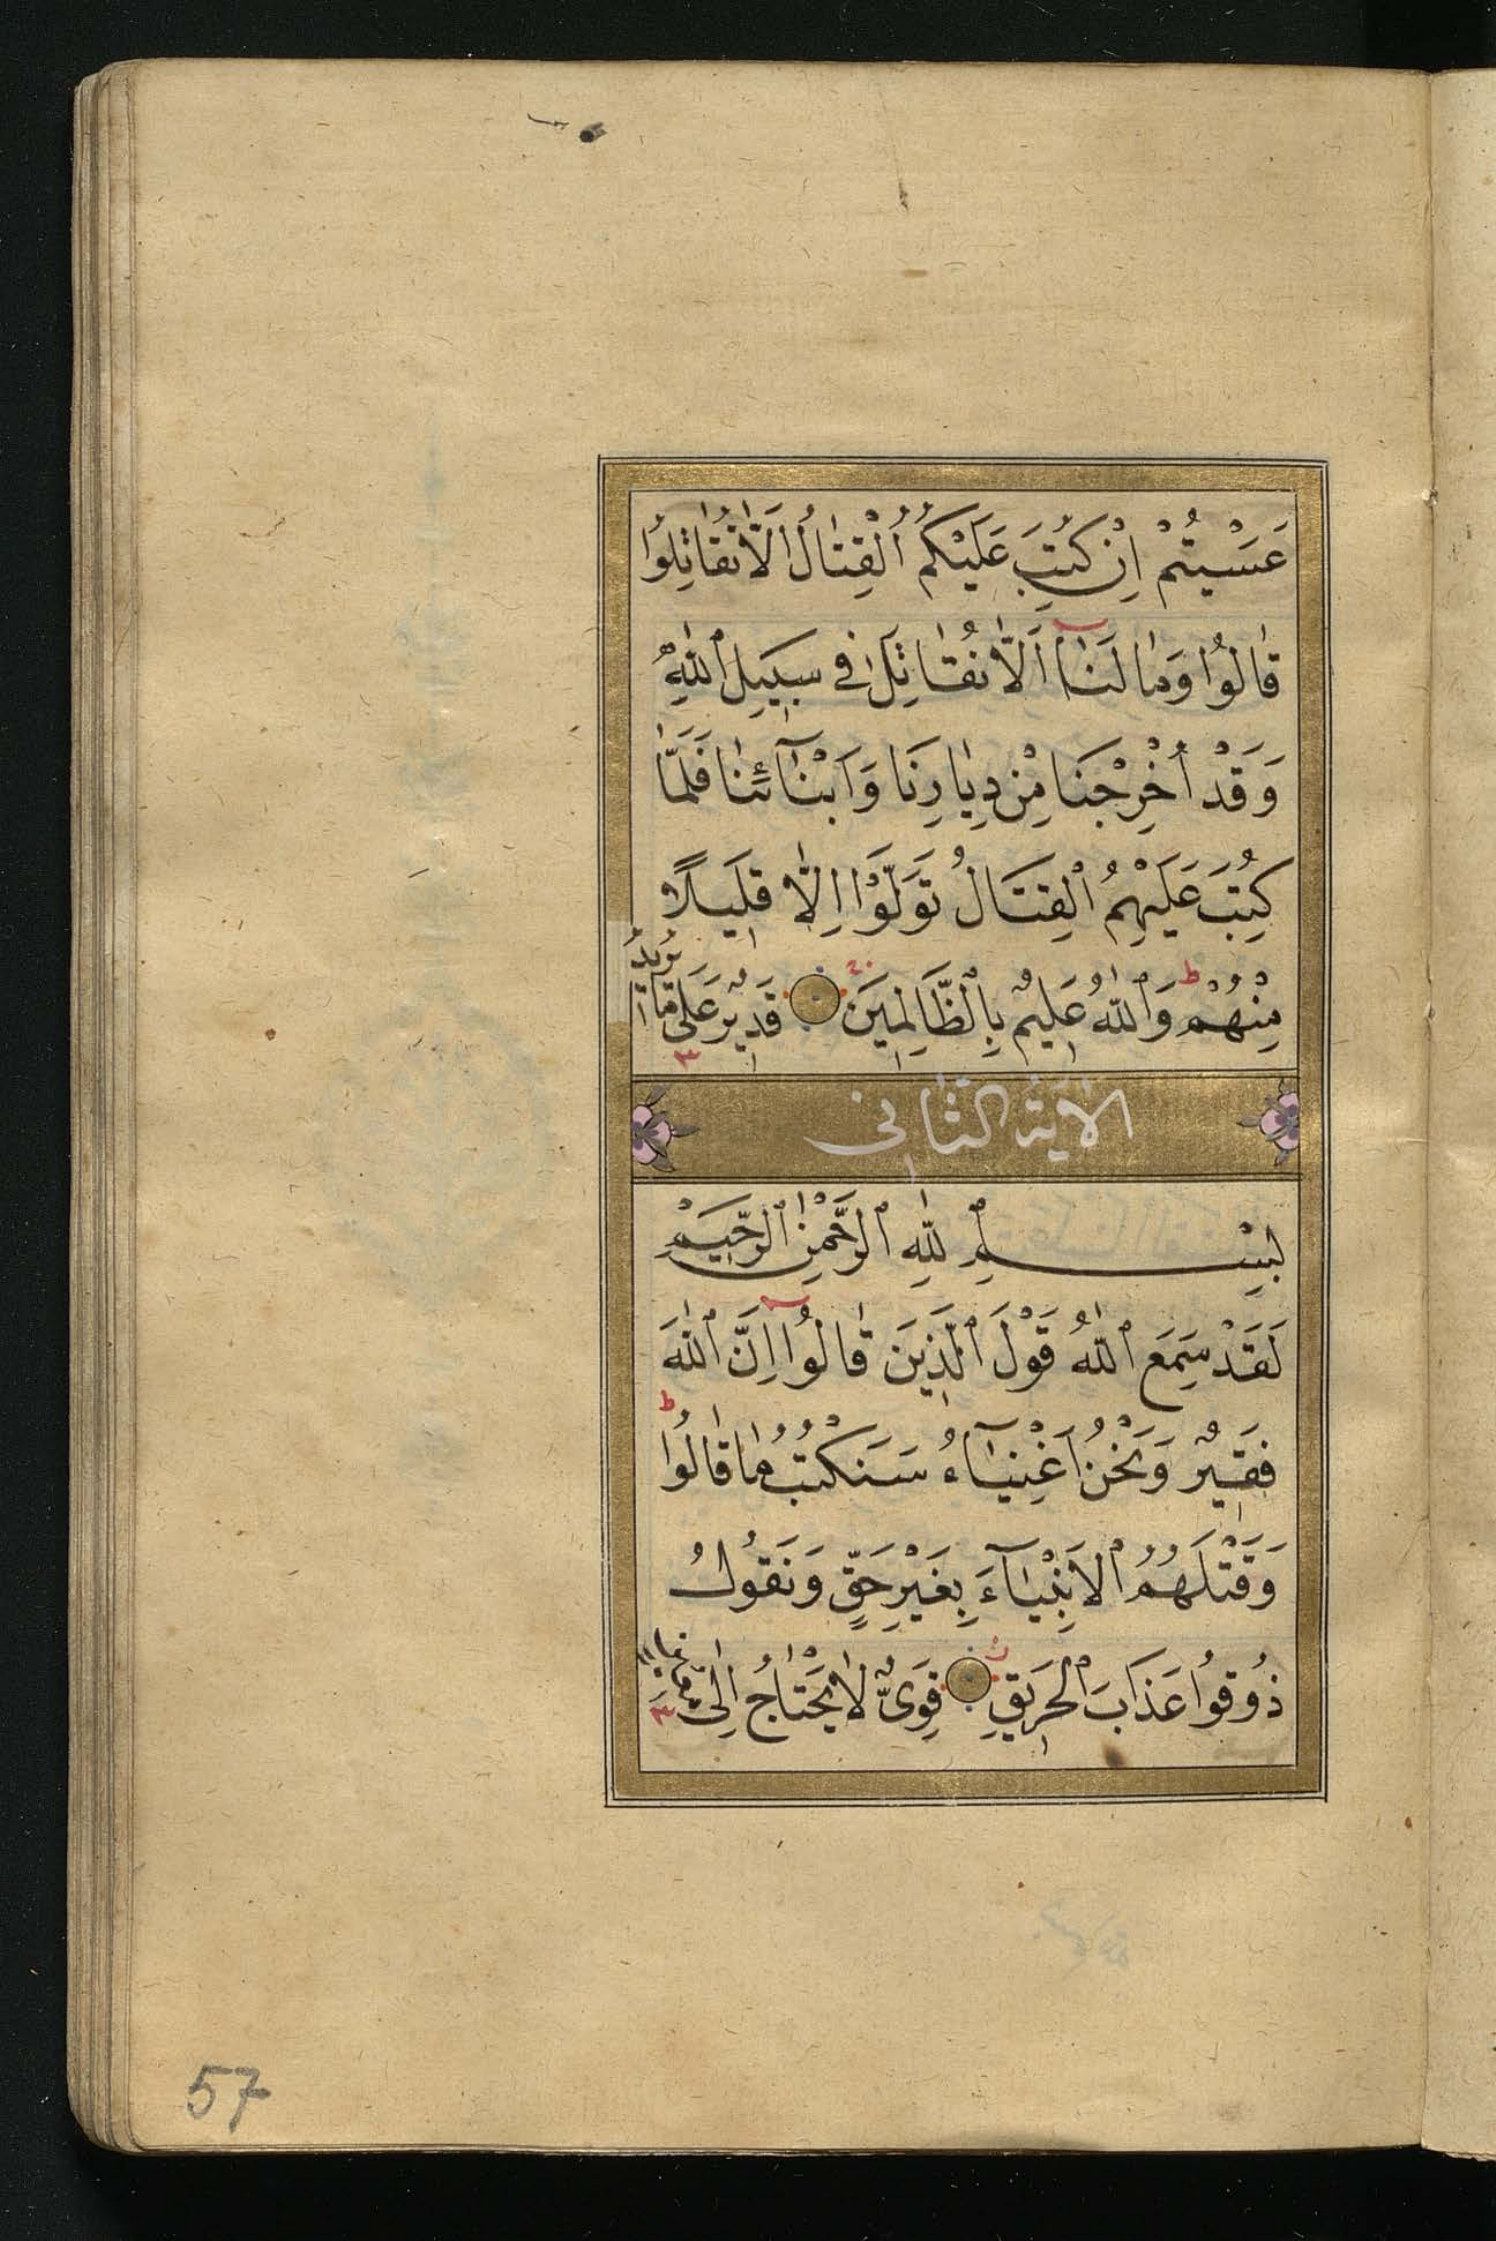 عَسَيْتُمْ اِنْ كُتِبَ عَلَيْكُمُ ٱلْقِتَالُ اَلَّا تُقَاتِلُوا
قَالُوا وَمَا لَنَا اَلَّا نُقَاتِلَ فِي سَبِيلِ ٱللّٰهِ
وَقَدْ اُخْرِجْنَا مِنْ دِيَارِنَا وَاَبْنَآئِنَا فَلَمَّا
كُتِبَ عَلَيْهِمُ ٱلْقِتَالُ تَوَلَّوْا اِلَّا قَلِيلًا
مِنْهُمْ ط وَٱللّٰهُ عَلِيمٌ بِٱلظَّالِمِينَ قَدِيرٌ عَلٰى مَا يُرِيدُ ٣
الآية الثاني
بِسْمِ ٱللّٰهِ ٱلرَّحْمٰنِ ٱلرَّحِيمِ
لَقَدْ سَمِعَ ٱللّٰهُ قَوْلَ ٱلَّذِينَ قَالُوا اِنَّ ٱللّٰهَ
فَقِيرٌ وَنَحْنُ اَغْنِيَآءُ سَنَكْتُبُ مَا قَالُوا ط
وَقَتْلَهُمُ ٱلْاَنْبِيَآءَ بِغَيْرِ حَقٍّ وَنَقُولُ
ذُوقُوا عَذَابَ ٱلْحَرِيقِ قَوِىٌّ لَا يَحْتَاجُ اِلٰى ٣
57